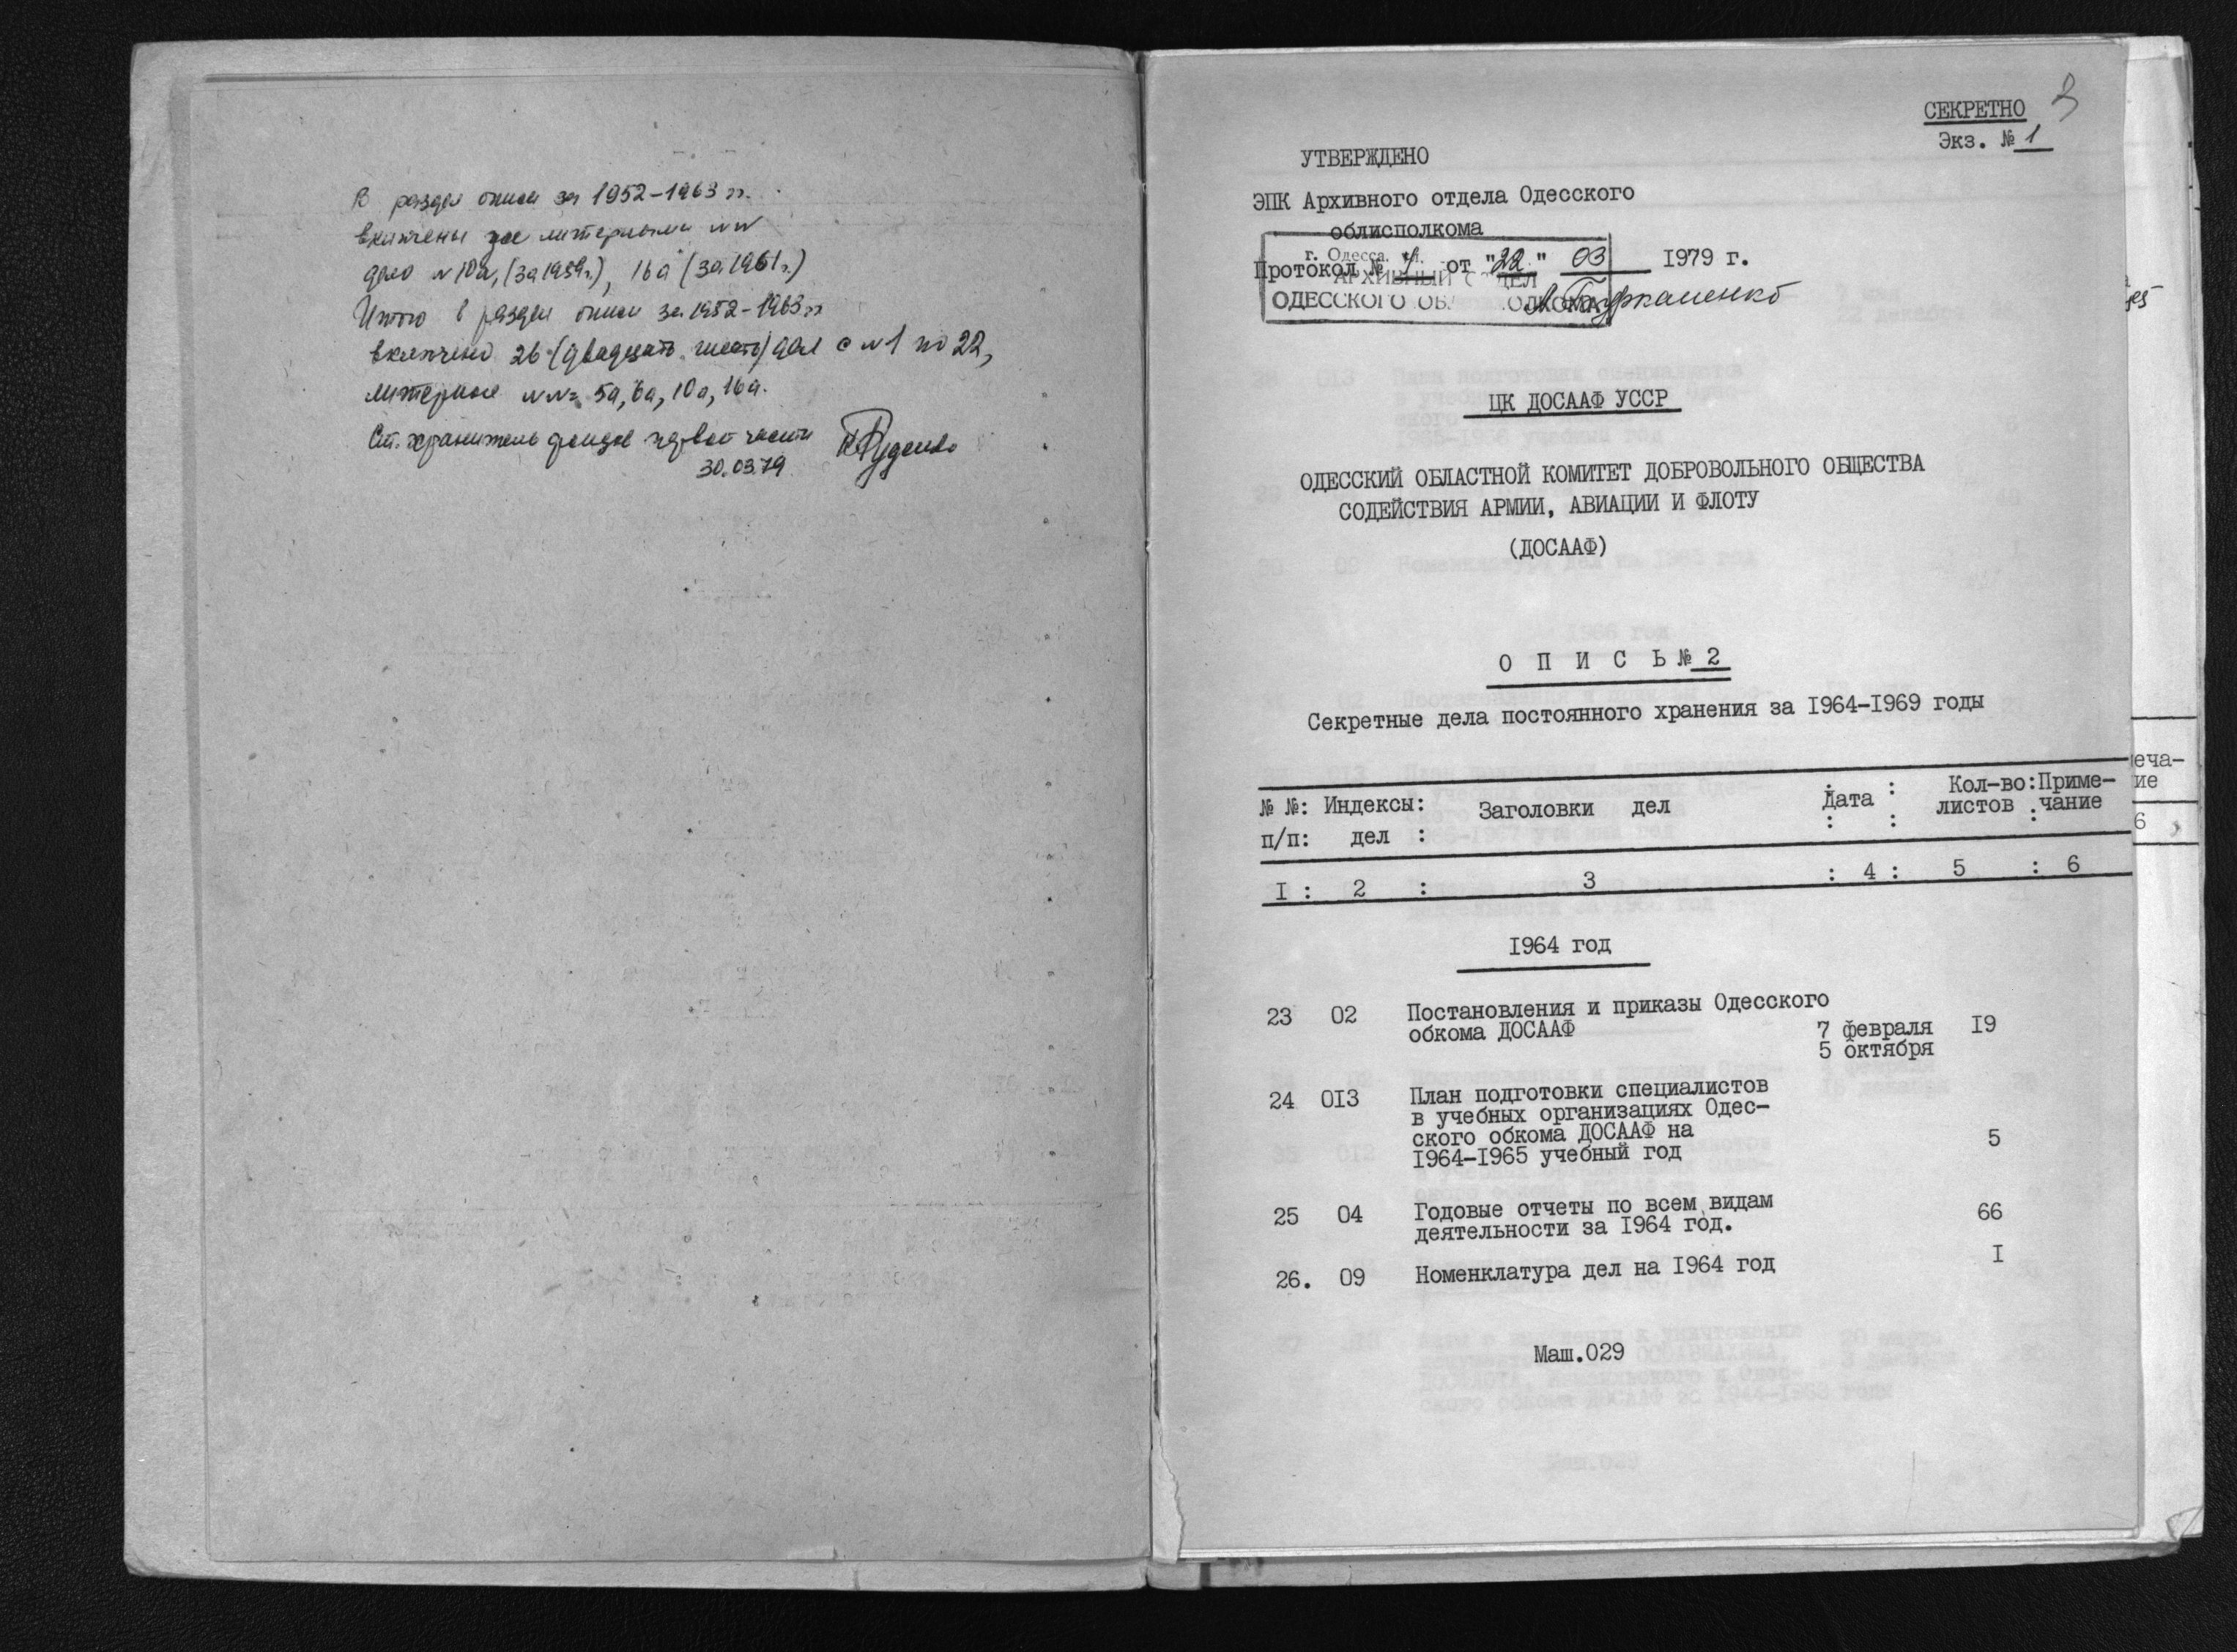 В раздел описи за 1952-1963 гг.
включены две литерными NN
дело N 10а, (за 1959г.), 16а (за 1961г.)
Итого в раздел описи за 1952-1963 гг
включено 26 (двадцать шесть) дел с N1 по 22,
литерные NN= 5а, 6а, 10а, 16а.
Ст. хранитель фондов первой части Руденко
30.03.79
3
СЕКРЕТНО
Экз. № 1
УТВЕРЖДЕНО
ЭПК Архивного отдела Одесского
облисполкома
г. Одесса
Протокол № от "22" 03 1979 г.
АРХИВНЫЙ ОТДЕЛ
ОДЕССКОГО
ЦК ДОСААФ УССР
ОДЕССКИЙ ОБЛАСТНОЙ КОМИТЕТ ДОБРОВОЛЬНОГО ОБЩЕСТВА
СОДЕЙСТВИЯ АРМИИ, АВИАЦИИ И ФЛОТУ
(ДОСААФ)
О П И С Ь № 2
Секретные дела постоянного хранения за I964-I969 годы
№ №: Индексы: Заголовки дел : Дата : Кол-во: Приме-
п/п: дел : : : листов : чание
I : 2 : 3 : 4 : 5 : 6
I964 год
23 02 Постановления и приказы Одесского
обкома ДОСААФ 7 февраля I9
5 октября
24 0I3 План подготовки специалистов
в учебных организациях Одес-
ского обкома ДОСААФ на 5
I964-I965 учебный год
25 04 Годовые отчеты по всем видам 66
деятельности за I964 год.
26. 09 Номенклатура дел на I964 год I
Маш.029
еча-
ие
6